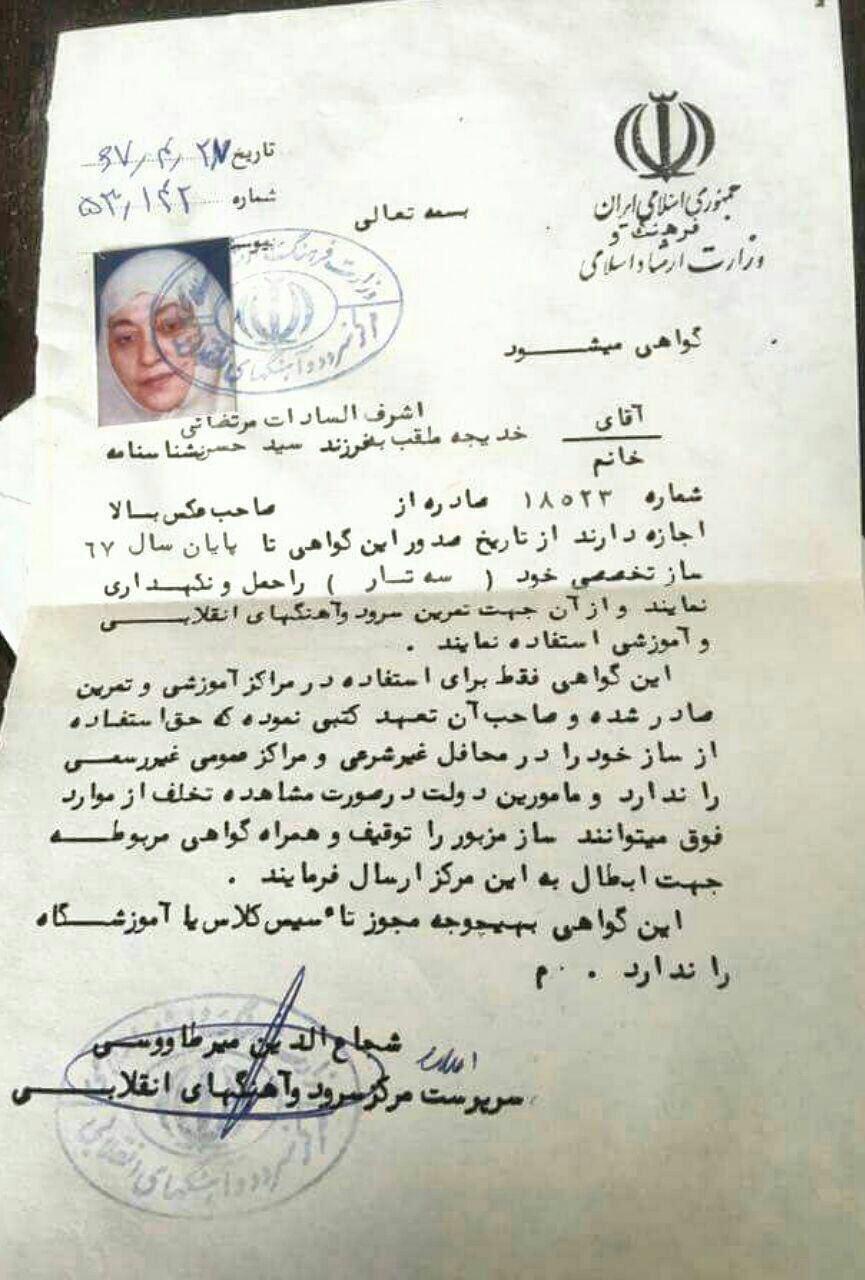 جمهوری اسلامی ایران
وزارت فرهنگ و ارشاد اسلامی
تاریخ ۶۷/۴/۲۷
شماره ۵۳/۱۴۲
پیوست
بسمه تعالی
گواهی میشود
آقای
خانم
اشرف السادات مرتضائی
خدیجه ملقب به فرزند سید حسن بشناسنامه
شماره ۱۸۵۲۳ صادره از صاحب عکس بالا
اجازه دارند از تاریخ صدور این گواهی تا پایان سال ۶۷
ساز تخصصی خود ( سه تار ) را حمل و نگهداری
نمایند و از آن جهت تمرین سرود و آهنگهای انقلابی
و آموزشی استفاده نمایند .
این گواهی فقط برای استفاده در مراکز آموزشی و تمرین
صادر شده و صاحب آن تعهد کتبی نموده که حق استفاده
از ساز خود را در محافل غیرشرعی و مراکز عمومی غیررسمی
را ندارد و مامورین دولت در صورت مشاهده تخلف از موارد
فوق میتوانند ساز مزبور را توقیف و همراه گواهی مربوطه
جهت ابطال به این مرکز ارسال فرمایند .
این گواهی بهیچوجه مجوز تاٴسیس کلاس یا آموزشگاه
را ندارد . م
شجاع الدین میرطاووسی
سرپرست مرکز سرود و آهنگهای انقلابی